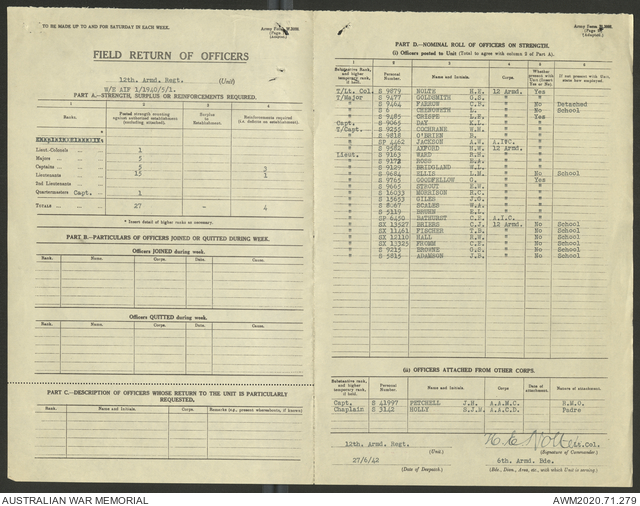 TO BE MADE UP TO AND FOR SATURDAY IN EACH WEEK.
Army Form
(Page
(Adapted.)
FIELD RETURN OF OFFICERS
12th. Armd. Regt. (Unit)
W/E AIF 1/1940/5/1.
PART A.—STRENGTH, SURPLUS OR REINFORCEMENTS REQUIRED.
1 2 3 4
Rank. Posted strength counting against authorised establishment (excluding attached). Surplus to Establishment. Reinforcements required (i.e. deficits on establishment).
Lieut.-Colonels 1
Majors 5
Captains 5 3
Lieutenants 15 1
2nd Lieutenants
Quartermasters Capt. 1
TOTALS 27 - 4
* Insert detail of higher ranks as necessary.
PART B.—PARTICULARS OF OFFICERS JOINED OR QUITTED DURING WEEK.
Officers JOINED during week.
Rank. Name. Corps. Date. Cause.
Officers QUITTED during week.
Rank. Name. Corps. Date. Cause.
PART C.—DESCRIPTION OF OFFICERS WHOSE RETURN TO THE UNIT IS PARTICULARLY REQUESTED.
Rank. Name and Initials. Corps. Remarks (e.g., present whereabouts, if known)
Army Form
(Page
(Adapted.)
PART D.—NOMINAL ROLL OF OFFICERS ON STRENGTH.
(i) Officers posted to Unit (Total to agree with column 2 of Part A).
1 2 3 4 5 6
Substantive Rank, and higher temporary rank, if held. Personal Number. Name and Initials Corps. Whether present with Unit (Insert Yes or No) If not present with Unit, state how employed.
T/Lt. Col. S 9879 NOLTE H.E. 12 Armd. Yes
T/Major S 9477 GOLDSMITH G.S. " "
" S 9464 FARROW C.B. " No Detached
" S 6 CHENOWETH L. " No School
" S 9485 CRISPE L.E. " Yes
Capt. S 9065 DAY K.L. " "
T/Capt. S 9255 COCHRANE W.N. " "
" S 9818 O'BRIEN R. " "
" SP 4462 JACKSON A.W. A.I.C. "
" S 9582 AXFORD H.W. 12 Armd. "
Lieut. S 9163 WARD R.N. " "
" S 9172 ROSS E.A. " "
" S 9129 BRIDGLAND S.L. " "
" S 9684 ELLIS L.N. " No School
" S 9765 GOODFELLOW G. " Yes
" S 9665 STROUT K.W. " "
" S 16033 MORRISON H.C. " "
" S 15653 GILES J.G. " "
" S 8067 SCALES W.A. " "
" S 5119 BRUNE E.L. " "
" SP 6450 BATHURST C.E. A.I.C. "
" SX 13527 BRIERS C.J. 12 Armd. No School
" SX 11461 FISCHER T.B. " No School
" SX 12110 HALL R.W. " No School
" SX 13325 FROMM C.E. " No School
" S 9215 BROWNE G.S. " No School
" S 5815 ADAMSON J.B. " No School
(ii) OFFICERS ATTACHED FROM OTHER CORPS.
Substantive Rank, and higher temporary rank, if held. Personal Number. Name and Initials Corps Date of attachment. Reason of attachment.
Capt. S 41997 PETCHELL J.H. A.A.M.C. R.M.O.
Chaplain S 3142 HOLLY S.J.N. A.A.C.D. Padre
12th. Armd. Regt. Lt.Col.
(Unit.) (Signature of Commander.)
27/6/42 6th. Armd. Bde.
(Date of Despatch) (Bde., Divn., Area, etc., with which Unit is serving)
AUSTRALIAN WAR MEMORIAL AWM2020.71.279